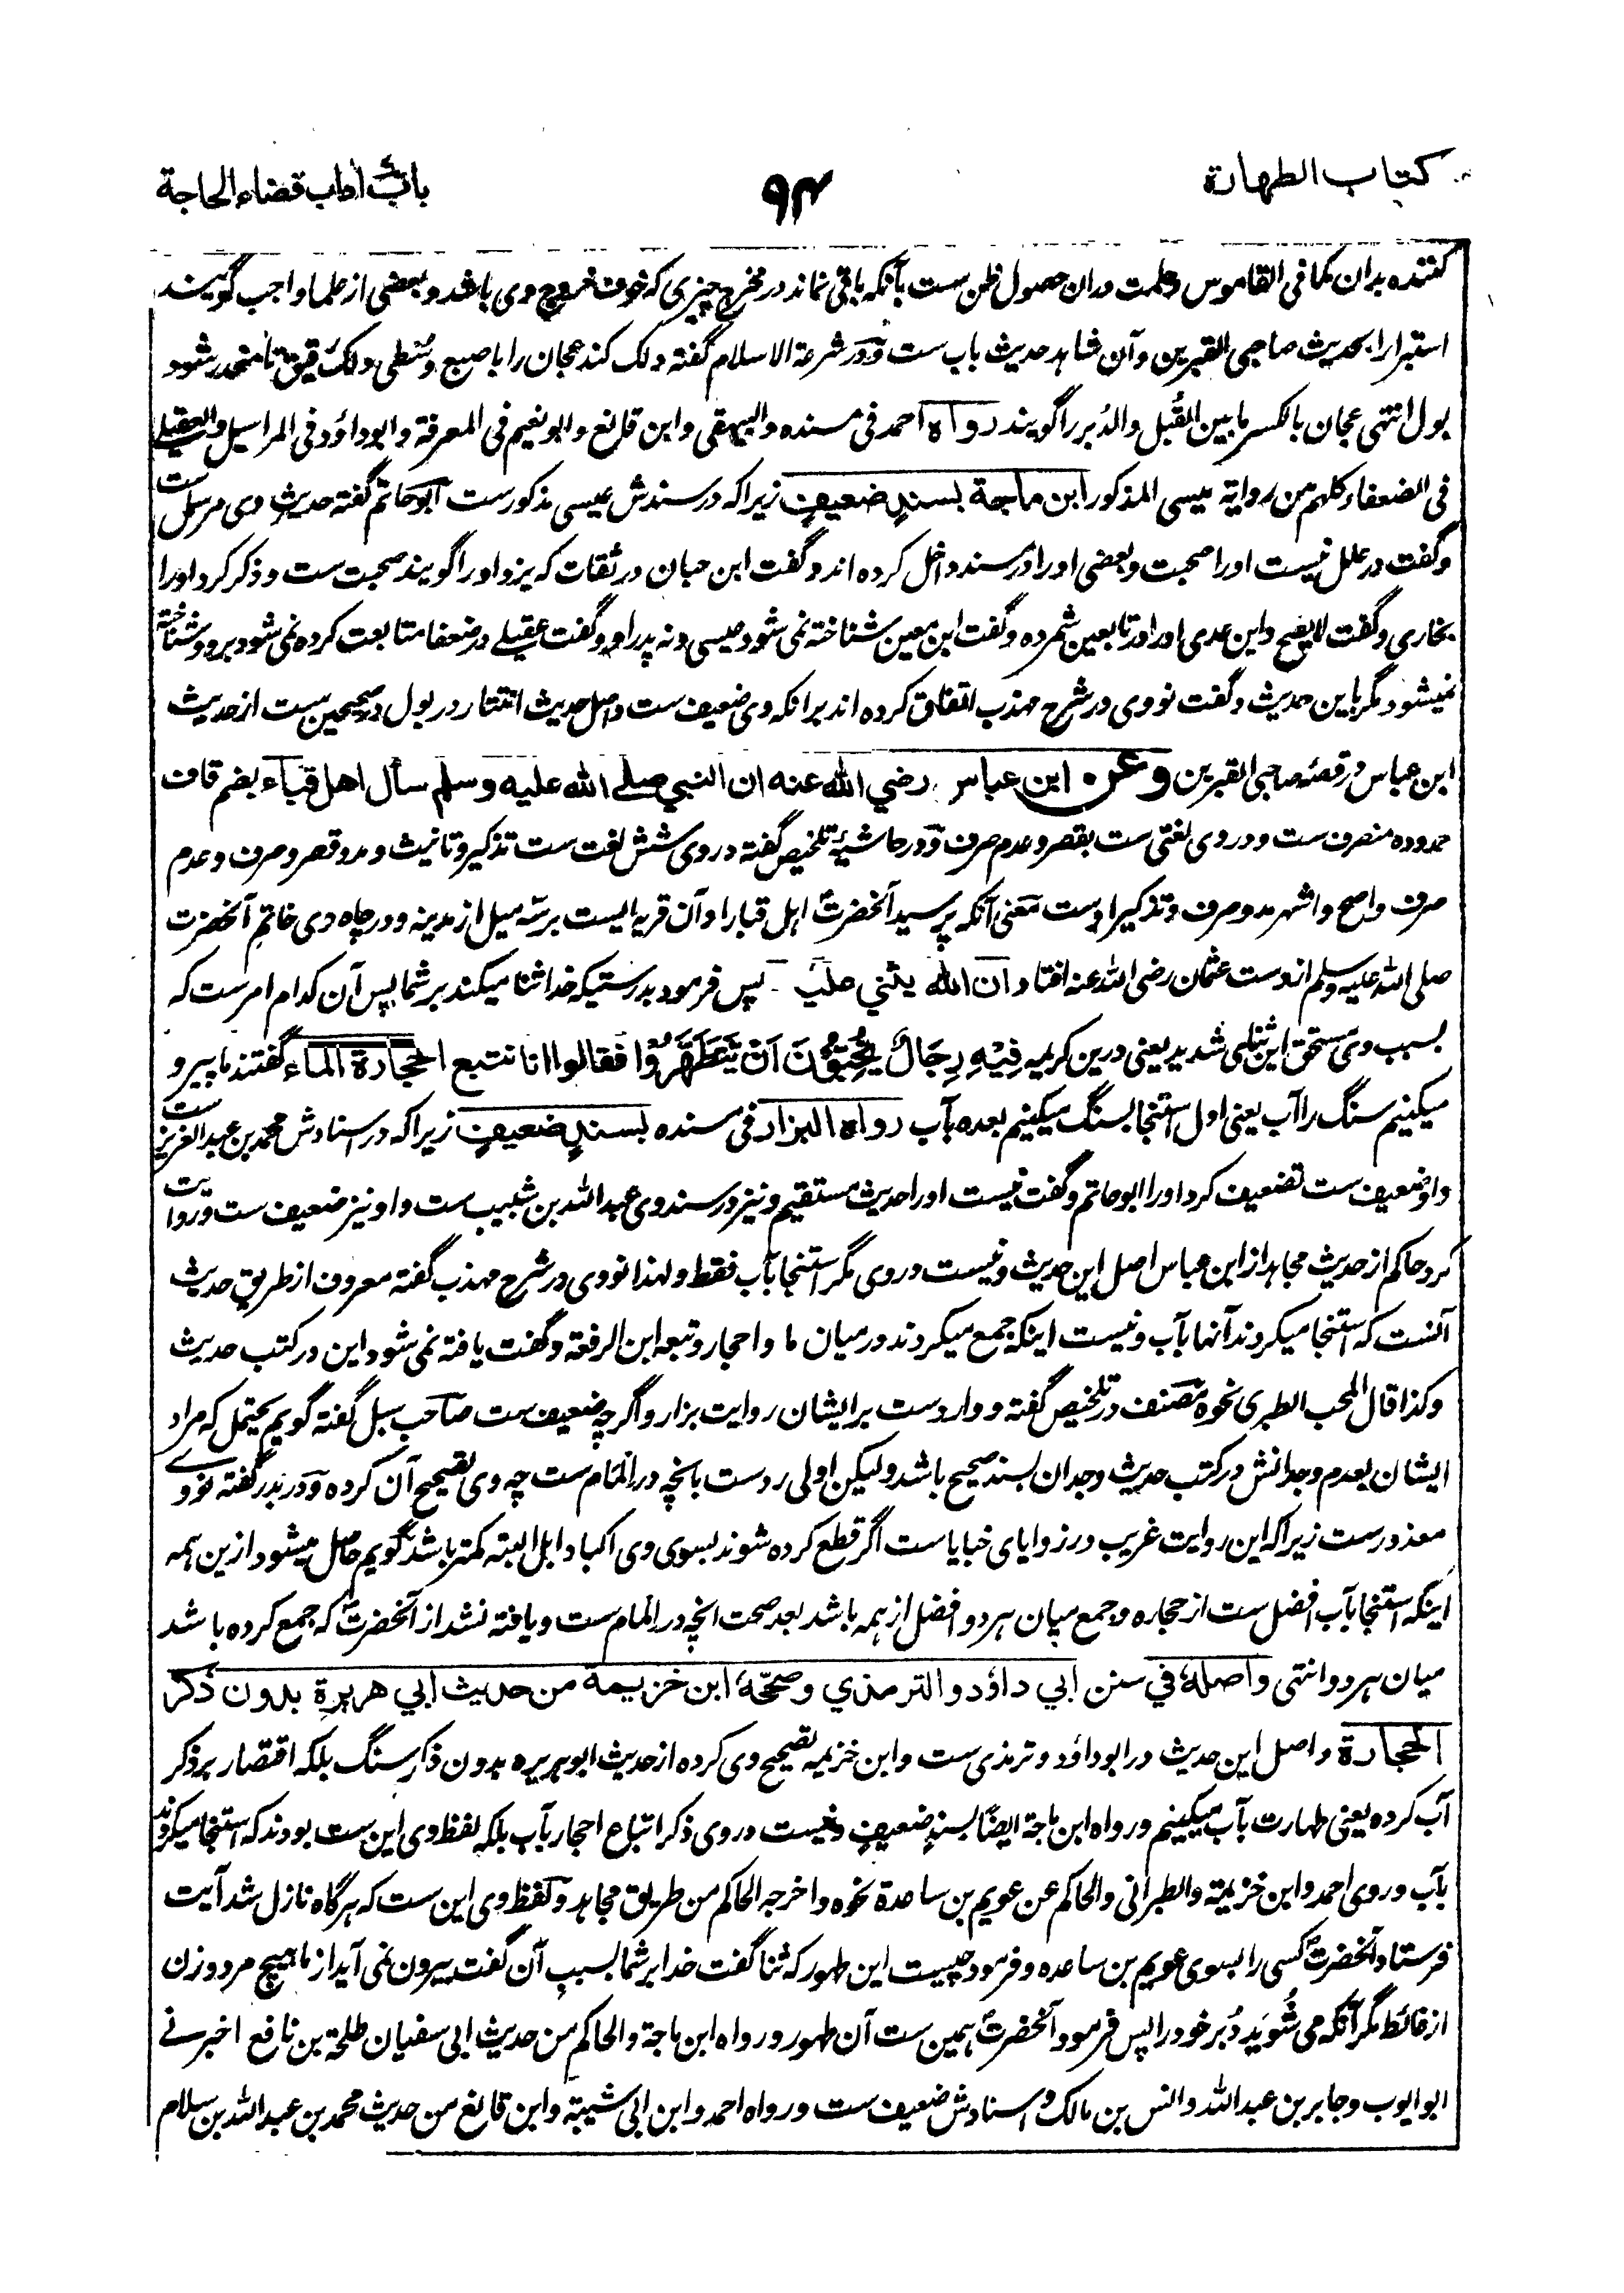 كتاب الطهارة
۹۴
باب آداب قضاء الحاجة
کننده بدان کما فی القاموس وحکمت دران حصول ظن ست بآنکه باقی نماند در مخرج چیزی که خوف خروج وی باشد وبعضی از علما واجب گویند
استبرا را بحدیث صاحبی القبرین وآن شاهد حدیث باب ست ودر شرعة الاسلام گفته دلک کند عجان را باصبع وسطی دلک رقیق تا منحدر شود
بول انتهی عجان بالکسر ما بین القُبل والدُبر را گویند رواه احمد فی مسنده والبیهقی وابن قانع وابو نعیم فی المعرفة وابو داؤد فی المراسیل والعقیلی
فی الضعفاء وکلهم من روایة عیسی المذکور ابن ماجة بسندٍ ضعیفٍ زیراکه در سندش عیسی مذکورست ابو حاتم گفته حدیث وی مرسل ست
وگفت در علل نیست اورا صحبت وبعضی اورا در مسند داخل کرده اند وگفت ابن حبان در ثقات که یزداد را گویند صحبت ست وذکر کرد اورا
بخاری وگفت لا یصح وابن عدی اورا در تابعین شمرده وگفت ابن معین شناخته نمی شود عیسی ونه پدر او وگفت عقیلے در ضعفا متابعت کرده نمی شود برو وشناخته
نمیشود مگر باین حدیث وگفت نووی در شرح مهذب اتفاق کرده اند برانکه وی ضعیف ست واصل حدیث انتثار در بول در صحیحین ست از حدیث
ابن عباس در قصهٔ صاحبی القبرین وعن ابن عباس رضي الله عنه ان النبي صلے الله عليه وسلم سأل اهل قباء بضم قاف
ممدوده منصرف ست ودر وی لغتی ست بقصر وعدم صرف ودر حاشیهٔ تلخیص گفته در وی شش لغت ست تذکیر وتانیث ومد وقصر وصرف وعدم
صرف واصح واشهر مد وصرف وتذکیر اوست معنی آنکه پرسید آنحضرتؐ اهل قبا را وآن قریه ایست بر سه میل از مدینه ودر چاه وی خاتم آنحضرت
صلی الله علیه وسلم از دست عثمان رضی الله عنه افتاد ان الله يثني عليكم پس فرمود بدرستیکه خدا ثنا میکند بر شما پس آن کدام امرست که
بسبب وی مستحق این ثنای شدید یعنی درین کریمه فِيْهِ رِجَالٌ يُّحِبُّوْنَ اَنْ يَّتَطَهَّرُوْا فقالوا انا نتبع الحجارة الماء گفتند ما پیرو
میکنیم سنگ را آب یعنی اول استنجا بسنگ میکنیم بعده بآب رواه البزار فی مسنده بسندٍ ضعیفٍ زیراکه در اسنادش محمد بن عبد العزیز ست
واو ضعیف ست تضعیف کرد اورا ابو حاتم وگفت نیست اورا حدیث مستقیم ونیز در سند وی عبد الله بن شبیب ست واو نیز ضعیف ست وروایت
کرد حاکم از حدیث مجاهد از ابن عباس اصل این حدیث ونیست در وی مگر استنجا بآب فقط ولهذا نووی در شرح مهذب گفته معروف از طریق حدیث
آنست که استنجا میکردند آنها بآب ونیست اینکه جمع میکردند در میان ما واحجار وتبعه ابن الرفعة وگفت یافته نمی شود این در کتب حدیث
وکذا قال المحب الطبری نحوه مصنف در تلخیص گفته ووارد ست بر ایشان روایت بزار واگرچه ضعیف ست صاحب سبل گفته گویم یحتمل که مراد
ایشان بعدم وجدانش در کتب حدیث وجدان بسند صحیح باشد ولیکن اولی رد ست بانچه در المام ست چه وی تصحیح آن کرده ودر بدر گفته نووے
معذورست زیراکه این روایت غریب در زوایای خبایاست اگر قطع کرده شوند بسوی وی اکباد ابل البته کمتر باشد گویم حاصل میشود ازین همه
اینکه استنجا بآب افضل ست از حجاره وجمع میان هر دو افضل از همه باشد بعد صحت انچه در المام ست ویافته نشد از آنحضرتؐ که جمع کرده باشد
میان هر دو انتهی واصله في سنن ابي داؤد والترمذي وصححه ابن خزيمة من حديث ابي هريرة بدون ذكر
الحجارة واصل این حدیث در ابو داؤد وترمذی ست وابن خزیمه تصحیح وی کرده از حدیث ابو هریره بدون ذکر سنگ بلکه اقتصار بر ذکر
آب کرده یعنی طهارت بآب میکنیم ورواه ابن ماجة ایضًا بسندٍ ضعیفٍ ونیست در وی ذکر اتباع احجار بآب بلکه لفظ وی این ست بودند که استنجا میکردند
بآب وروی احمد وابن خزیمة والطبرانی والحاکم عن عویم بن ساعدة نحوه واخرجه الحاکم من طریق مجاهد ولفظ وی این ست که هرگاه نازل شد آیت
فرستاد آنحضرتؐ کسی را بسوی عویم بن ساعده وفرمود چیست این طهور که ثنا گفت خدا بر شما بسبب آن گفت بیرون نمی آید از ما هیچ مرد وزن
از غائط مگر آنکه می شُویَد دُبر خود را پس فرمود آنحضرتؐ همین ست آن طهور ورواه ابن ماجة والحاکم من حدیث ابی سفیان طلحة بن نافع اخبرنے
ابو ایوب وجابر بن عبد الله وانس بن مالک واسنادش ضعیف ست ورواه احمد وابن ابی شیبة وابن قانع من حدیث محمد بن عبد الله بن سلام